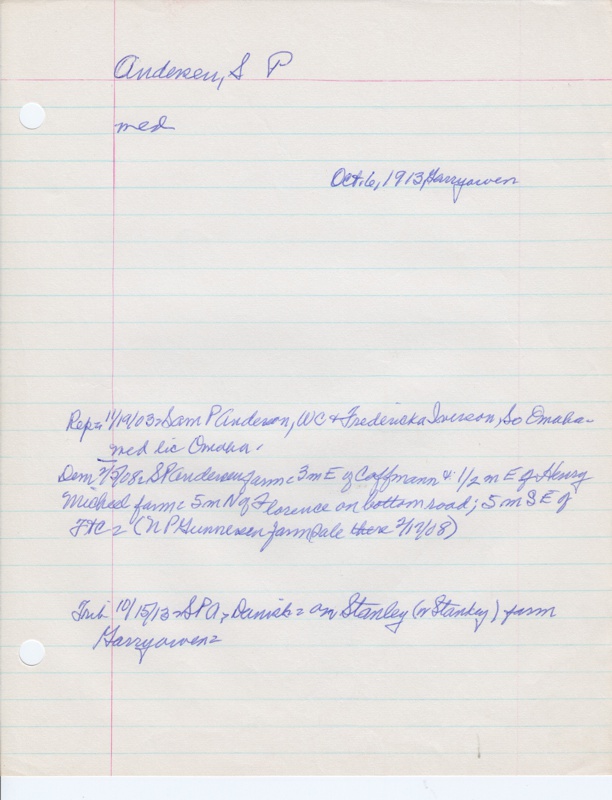 Andersen, S P
med
Oct. 6, 1913, Garryowen
Rep= 11/19/03= Sam P Anderson, WC & Fredericka Iverson, So Omaha-
med lic Omaha.
Dem 2/5/08= S P Andersen farm= 3 m E of Coffmann & 1/2 m E of Henry
Michael farm= 5 m N of Florence on bottom road; 5 m S E of
FtC= (N P Gunnersen farm sale there 2/12/08)
Trib 10/15/13= S P A, Danish= on Stanley (or Stankey) farm
Garryowen=